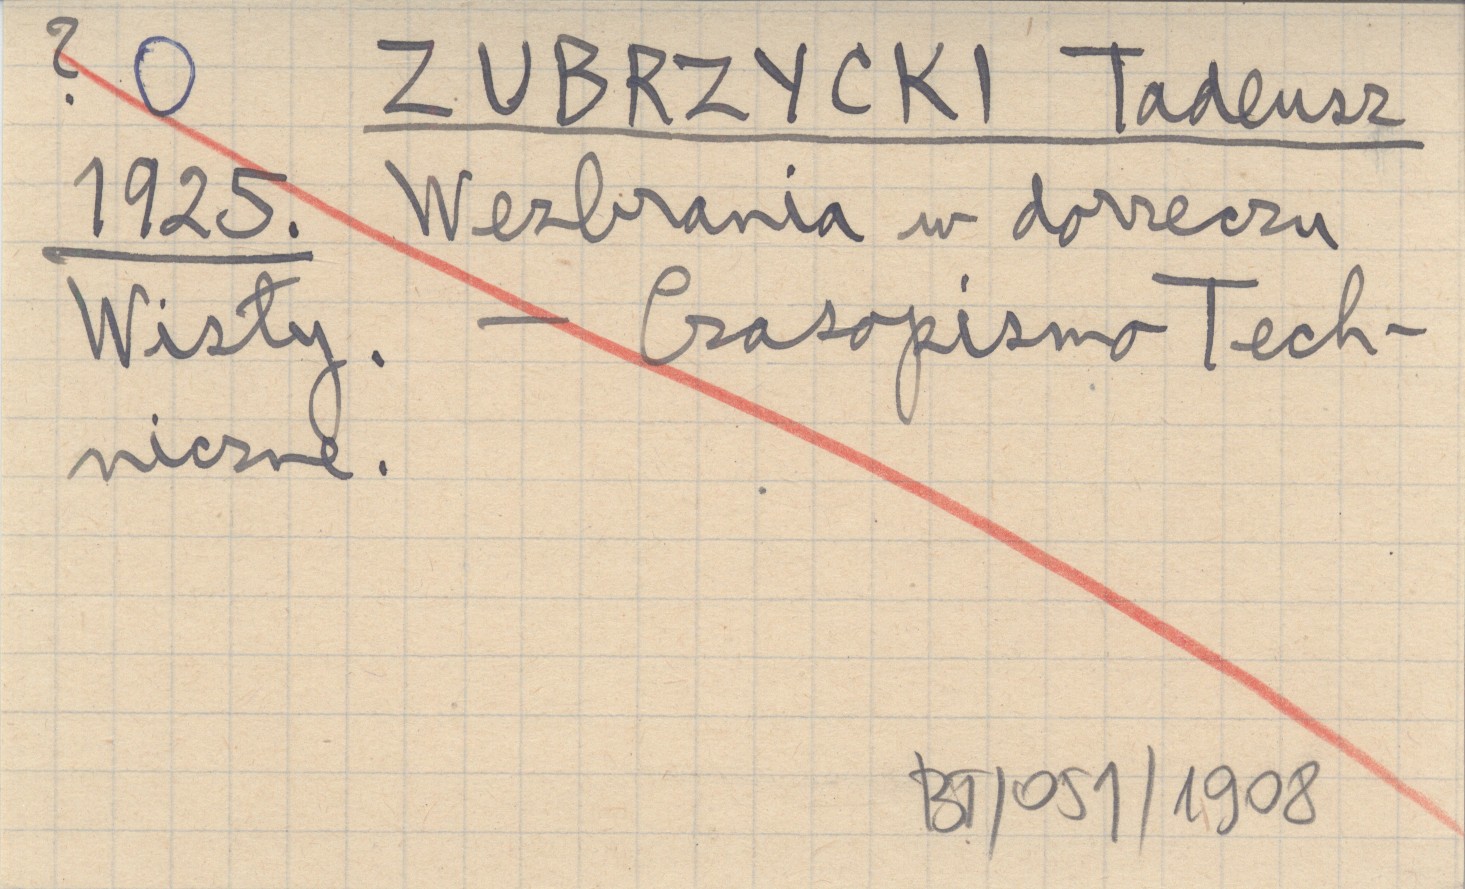 ? O ZUBRZYCKI Tadeusz
1925. Wezbrania w dorzeczu
Wisły. — Czasopismo Tech-
niczne.
BT/051/1908